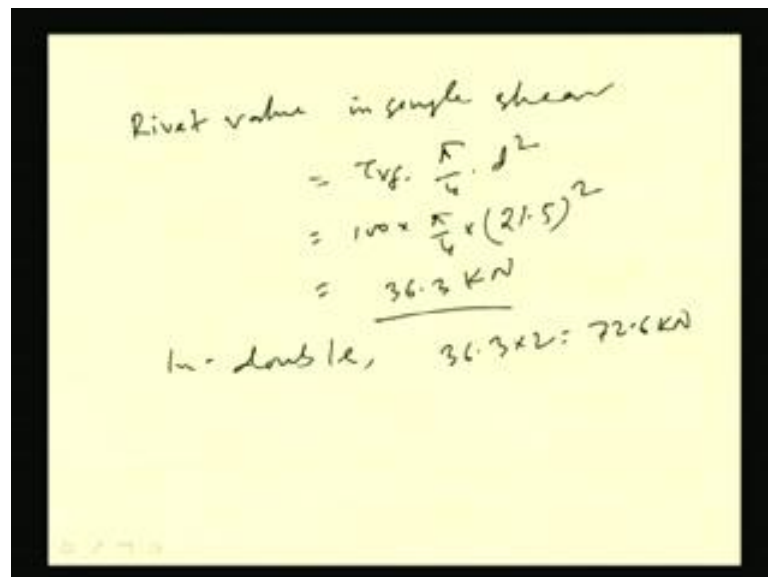 Rivet value in single shear
= τvf. π/4 . d²
= 100 × π/4 × (21.5)²
= 36.3 KN
In-double, 36.3×2 = 72.6 KN